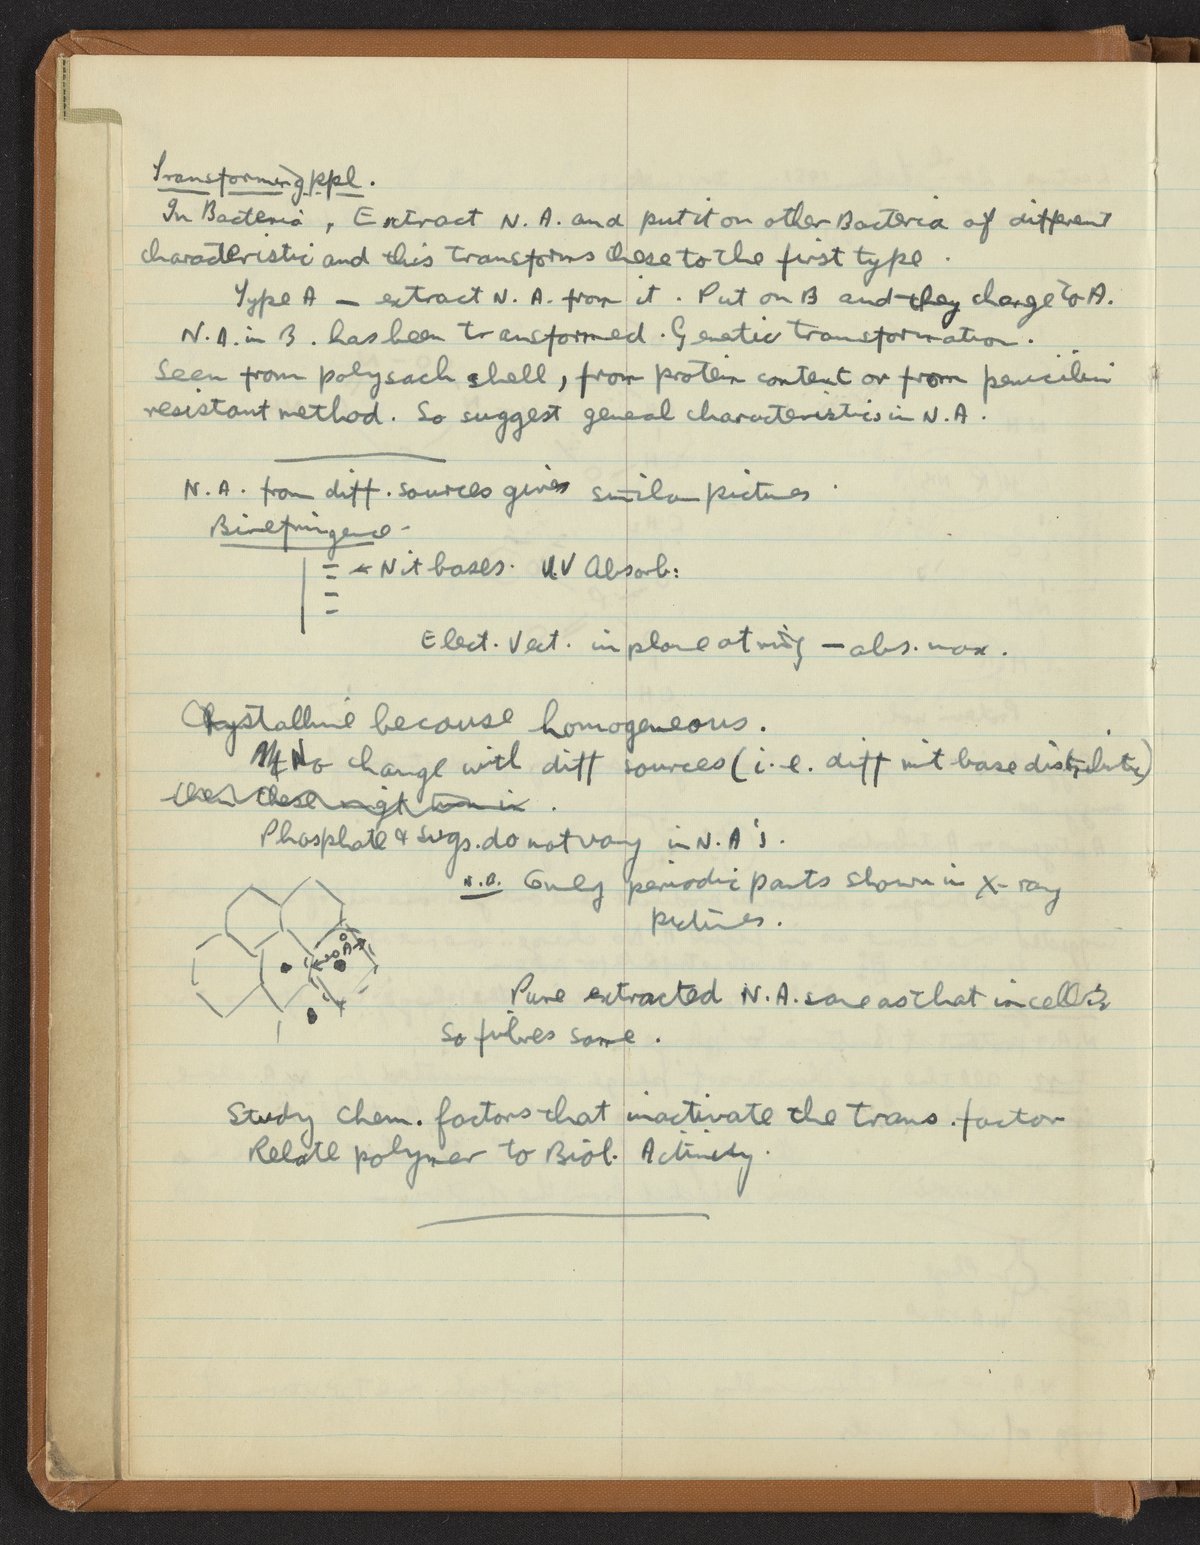 Transforming ppl.
In Bacteria, Extract N.A. and put it on other Bacteria of different
characteristic and this transforms these to the first type.
Type A — extract N.A. from it. Put on B and they change to A.
N.A. in B. has been transformed. Genetic transformation.
Seen from polysach shell, from protein content or from penicilin
resistant method. So suggest general characteristics in N.A.
N.A. from diff. sources gives similar pictures.
Birefringence -
← Nit bases. U.V Absorb:
Elect. Vect. in plane of ring — abs. max.
Crystalline because homogeneous.
No change with diff sources (i.e. diff nit base distribution)
then these might
Phosphate & sugs. do not vary in N.A's.
N.B. Only periodic parts shown in X-ray
pictures.
20 A°
Pure extracted N.A. same as that in cells
so fibres same.
Study chem. factors that inactivate the trans. factor
Relate polymer to Biol. Activity.